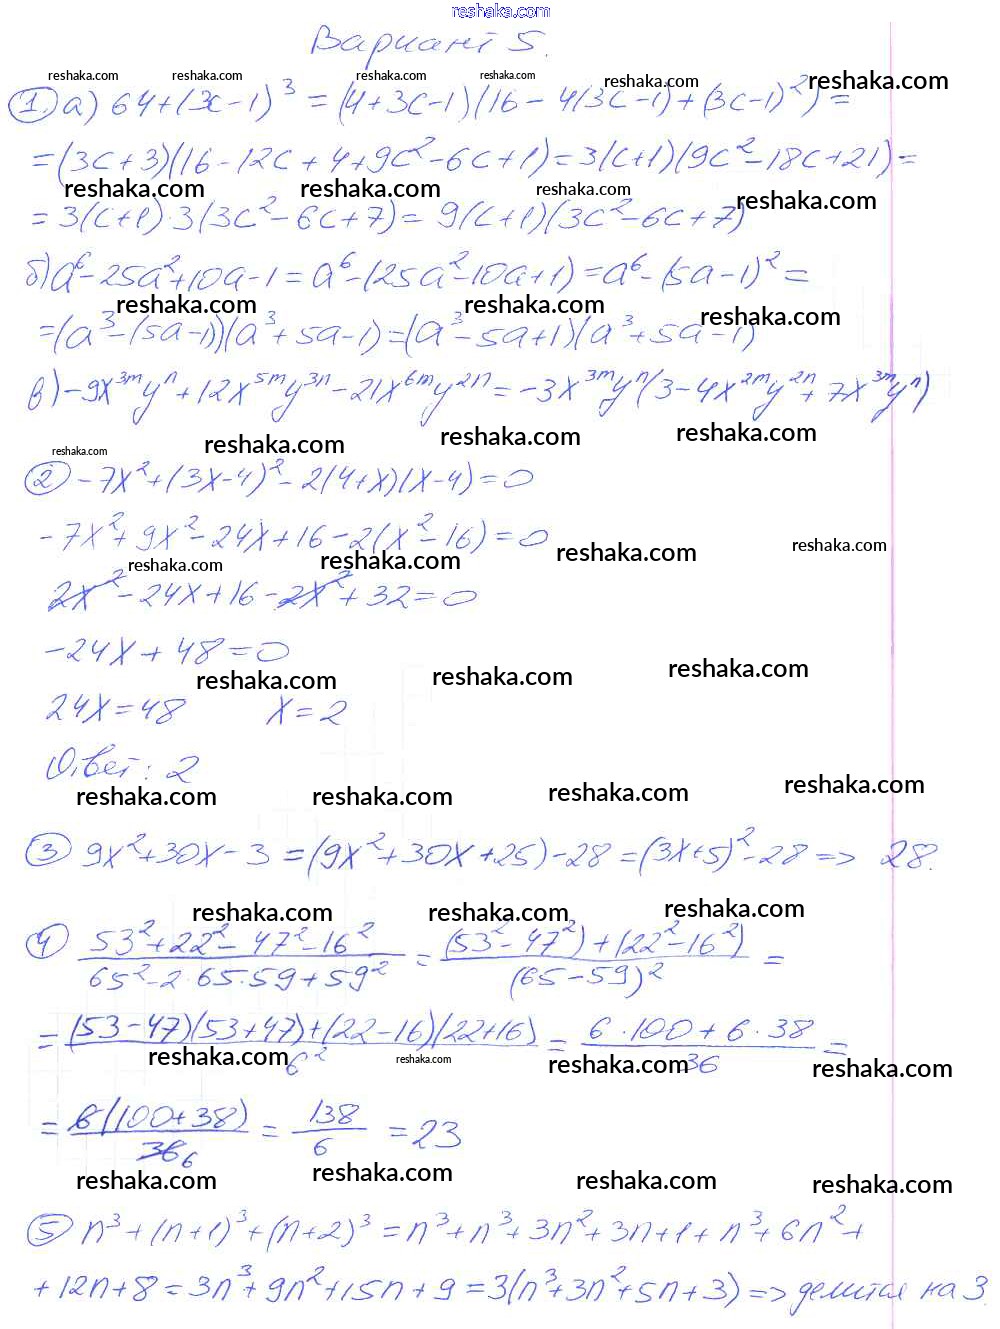 reshaka.com
Вариант 5.
reshaka.com reshaka.com reshaka.com reshaka.com reshaka.com reshaka.com
① а) 64+(3c-1)³ = (4+3c-1)(16-4(3c-1)+(3c-1)²) =
=(3c+3)(16-12c+4+9c²-6c+1)=3(c+1)(9c²-18c+21)=
reshaka.com reshaka.com reshaka.com reshaka.com
=3(c+1)·3(3c²-6c+7)=9(c+1)(3c²-6c+7)
б) a⁶-25a²+10a-1=a⁶-(25a²-10a+1)=a⁶-(5a-1)²=
reshaka.com reshaka.com reshaka.com
=(a³-(5a-1))(a³+5a-1)=(a³-5a+1)(a³+5a-1)
в) -9x³ᵐyⁿ+12x⁵ᵐy³ⁿ-21x⁶ᵐy²ⁿ=-3x³ᵐyⁿ(3-4x²ᵐy²ⁿ+7x³ᵐyⁿ)
reshaka.com reshaka.com reshaka.com reshaka.com
② -7x²+(3x-4)²-2(4+x)(x-4)=0
-7x²+9x²-24x+16-2(x²-16)=0
reshaka.com reshaka.com reshaka.com reshaka.com
2x²-24x+16-2x²+32=0
-24x+48=0
reshaka.com reshaka.com reshaka.com
24x=48 x=2
Ответ: 2
reshaka.com reshaka.com reshaka.com reshaka.com
③ 9x²+30x-3=(9x²+30x+25)-28=(3x+5)²-28 => 28.
reshaka.com reshaka.com reshaka.com
④ (53²+22²-47²-16²)/(65²-2·65·59+59²) = ((53²-47²)+(22²-16²))/(65-59)² =
= ((53-47)(53+47)+(22-16)(22+16))/6² = (6·100+6·38)/36 =
reshaka.com reshaka.com reshaka.com reshaka.com
= 6(100+38)/36 6 = 138/6 = 23
reshaka.com reshaka.com reshaka.com reshaka.com
⑤ n³+(n+1)³+(n+2)³=n³+n³+3n²+3n+1+n³+6n²+
+12n+8=3n³+9n²+15n+9=3(n³+3n²+5n+3) => делится на 3